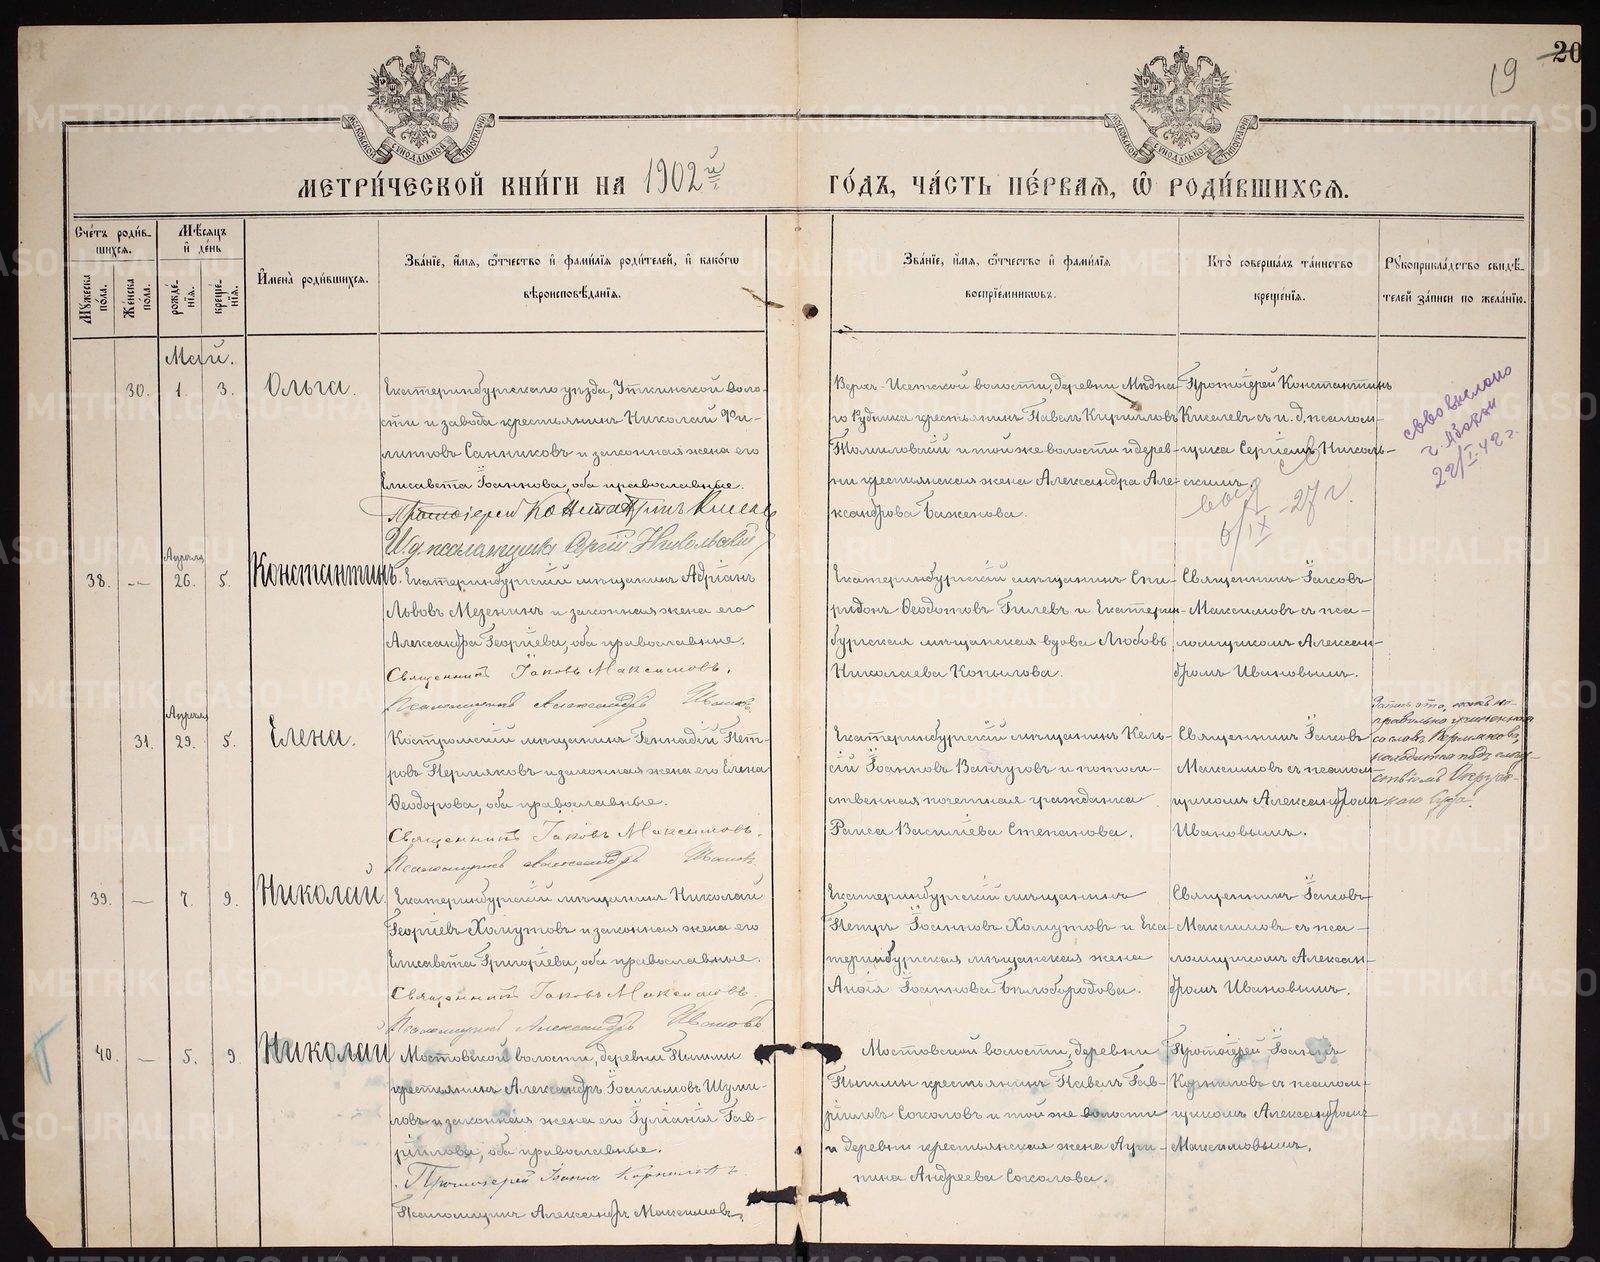 19
20
МОСКОВСКОЙ СУНОДАЛЬНОЙ ТИПОГРАФІИ
МОСКОВСКОЙ СУНОДАЛЬНОЙ ТИПОГРАФІИ
МЕТРИ́ЧЕСКОЙ КНИ́ГИ НА 1902й
ГО́ДЪ, ЧА́СТЬ ПЕ́РВАЯ, Ѡ РОДИ́ВШИХСЯ.
Сче́тъ роди́вшихся.
Мужеска по́ла.
Же́нска по́ла.
Мѣ́сяцъ и де́нь
рожде́нїя.
креще́нїя.
И҆мена̀ роди́вшихся.
Зва́нїе, и҆́мя, ѻ҆́тчество и҆ фами́лїя роди́телей, и҆ како́гѡ
вѣроисповѣ́данїя.
Зва́нїе, и҆́мя, ѻ҆́тчество и҆ фами́лїя
воспрїе́мниковъ.
Кто̀ соверша́лъ та́инство
креще́нїя.
Рукоприкла́дство свидѣ́-
телей за́писи по жела́нїю.
Май.
30. 1. 3. Ольга.
Екатеринбургскаго уѣзда, Уткинской воло-
сти и завода крестьянинъ Николай Фи-
липповъ Санниковъ и законная жена его
Елисавета Іоаннова, оба православные.
Протоіерей Константинъ Киселевъ
И. д. псаломщика Сергій Никольскій
Верхъ-Исетской волости, деревни Мѣдна-
го Рудника крестьянинъ Павелъ Кирилловъ
Толмиловскій и той же волости и дерев-
ни крестьянская жена Александра Але-
ксандрова Баженова.
Протоіерей Константинъ
Киселевъ съ и. д. псалом-
щика Сергіемъ Николь-
скимъ.
6/IX-27 г.
св-во выслано
22/I-42 г.
Апрѣля
38. — 26. 5. Константинъ.
Екатеринбургскій мѣщанинъ Адріанъ
Львовъ Мезенинъ и законная жена его
Александра Георгіева, оба православные.
Священникъ Іаковъ Максимовъ.
Псаломщикъ Александръ Ивановъ
Екатеринбургскій мѣщанинъ Спи-
ридонъ Ѳеодотовъ Гилевъ и Екатерин-
бургская мѣщанская вдова Любовь
Николаева Копылова.
Священникъ Іаковъ
Максимовъ съ пса-
ломщикомъ Алексан-
дромъ Ивановымъ.
Апрѣля
31. 29. 5. Елена.
Костромскій мѣщанинъ Геннадій Пет-
ровъ Пермяковъ и законная жена его Елена
Ѳеодорова, оба православные.
Священникъ Іаковъ Максимовъ.
Псаломщикъ Александръ Ивановъ
Екатеринбургскій мѣщанинъ Кель-
сій Іоанновъ Ванчуговъ и потом-
ственная почетная гражданка
Раиса Василіева Степанова.
Священникъ Іаковъ
Максимовъ съ псалом-
щикомъ Александромъ
Ивановымъ.
Запись эта, какъ не-
правильно
со словъ Пермякова,
находится подъ слѣд-
ствіемъ Окруж-
наго Суда.
39. — 7. 9. Николай
Екатеринбургскій мѣщанинъ Николай
Георгіевъ Хомутовъ и законная жена его
Елисавета Григоріева, оба православные.
Священникъ Іаковъ Максимовъ.
Псаломщикъ Александръ Ивановъ
Екатеринбургскій мѣщанинъ
Петръ Іоанновъ Хомутовъ и Ека-
теринбургская мѣщанская жена
Анѳія Іоаннова Бѣлобородова.
Священникъ Іаковъ
Максимовъ съ пса-
ломщикомъ Алексан-
дромъ Ивановымъ.
40. — 5. 9. Николай
Мостовской волости, деревни Пышмы
крестьянинъ Александръ Іоакимовъ Шуми-
ловъ и законная жена его Іуліанія Гав-
ріилова, оба православные.
Протоіерей Іоаннъ Корниловъ
Псаломщикъ Александръ Максимовъ.
Мостовской волости, деревни
Пышмы крестьянинъ Павелъ Гав-
ріиловъ Соколовъ и той же волости
и деревни крестьянская жена Агри-
пина Андреева Соколова.
Протоіерей Іоаннъ
Корниловъ съ псалом-
щикомъ Александромъ
Максимовымъ.
METRIKI.GASO-URAL.RU